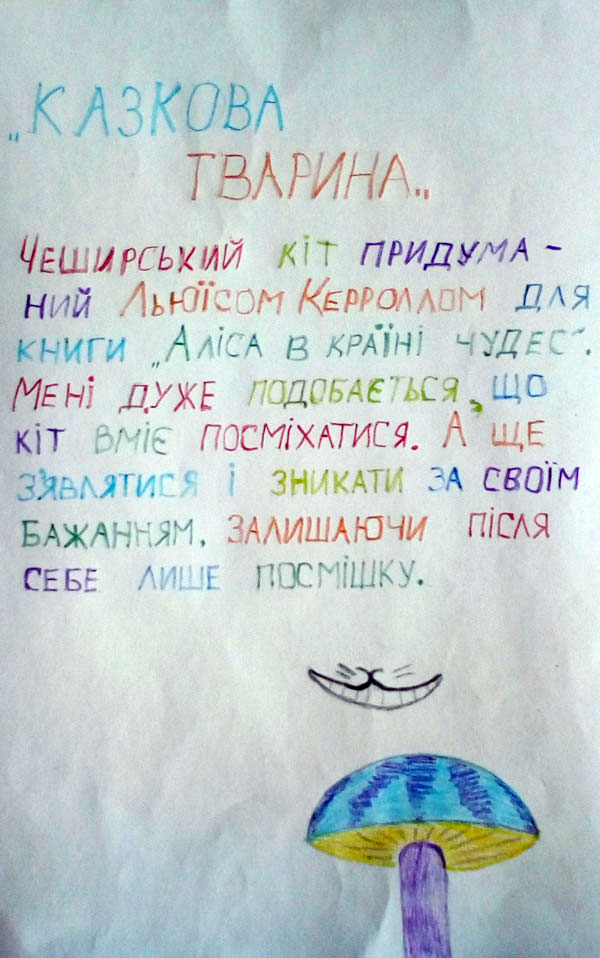 „КАЗКОВА
ТВАРИНА„
ЧЕШИРСЬКИЙ КІТ ПРИДУМА-
НИЙ ЛЬЮЇСОМ КЕРРОЛЛОМ ДЛЯ
КНИГИ „АЛІСА В КРАЇНІ ЧУДЕС“.
МЕНІ ДУЖЕ ПОДОБАЄТЬСЯ, ЩО
КІТ ВМІЄ ПОСМІХАТИСЯ. А ЩЕ
З'ЯВЛЯТИСЯ І ЗНИКАТИ ЗА СВОЇМ
БАЖАННЯМ, ЗАЛИШАЮЧИ ПІСЛЯ
СЕБЕ ЛИШЕ ПОСМІШКУ.